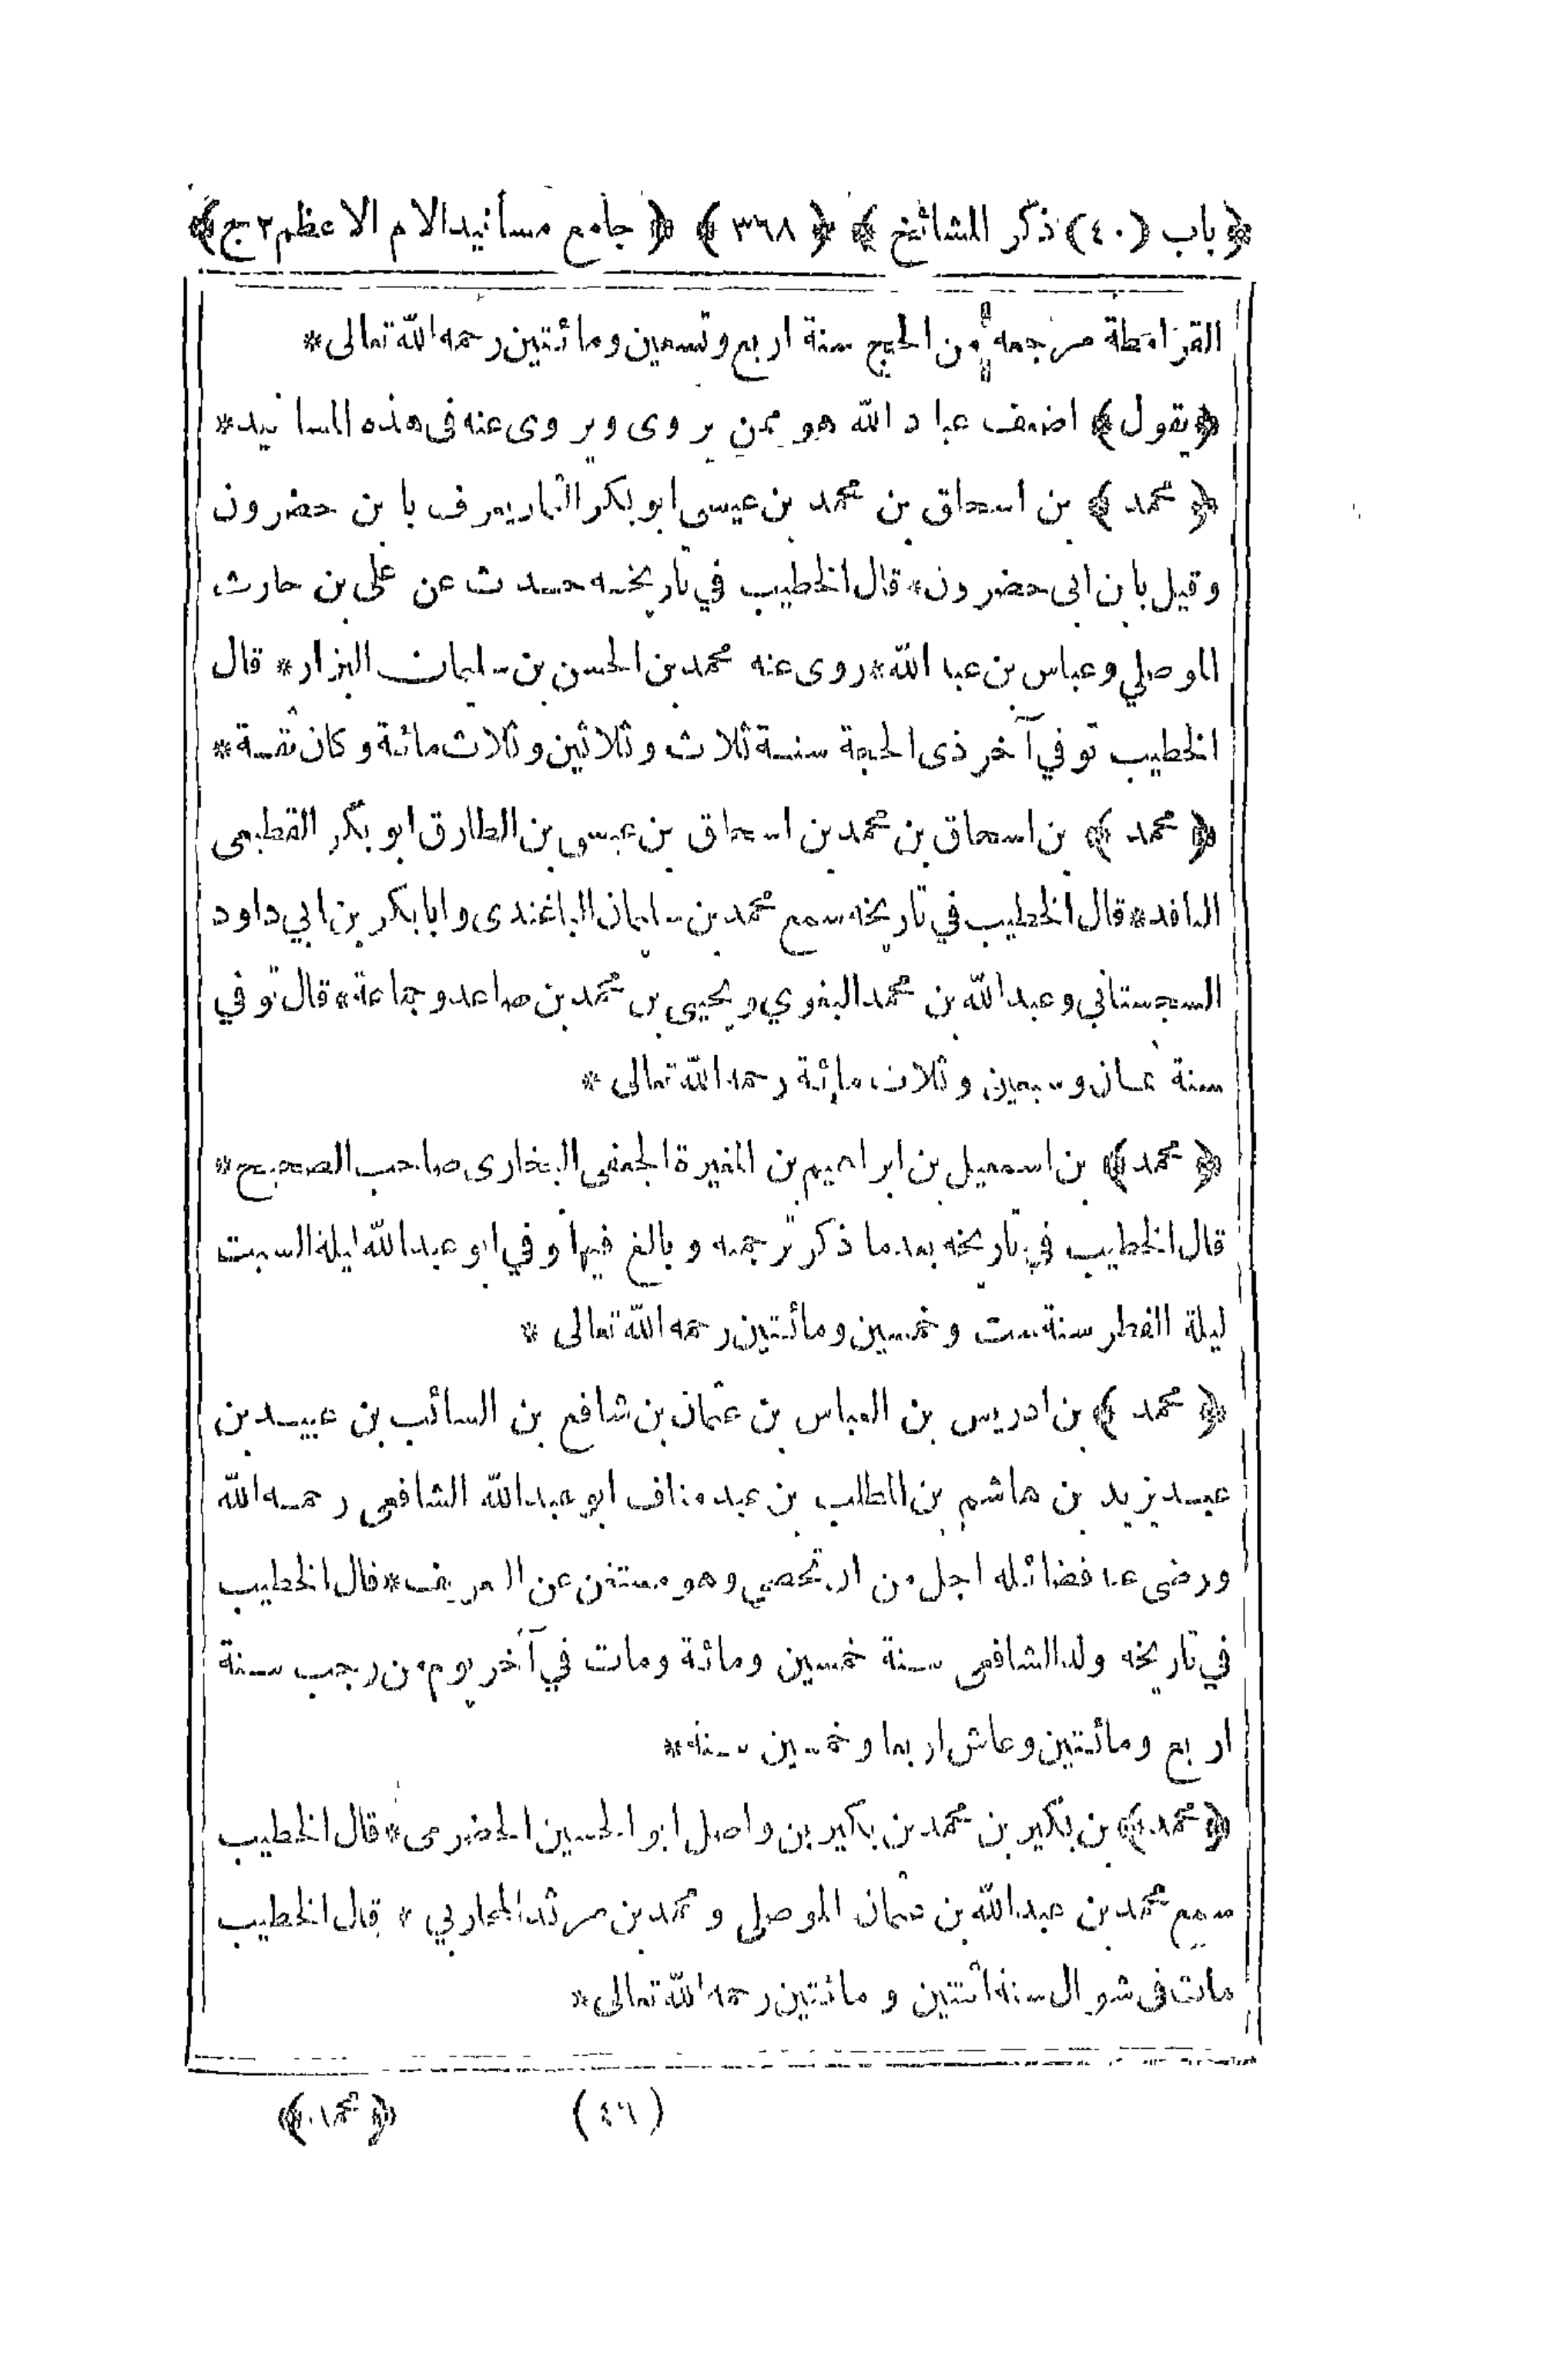 ﴿باب (٤٠) ذكر المشائخ﴾ ﴿٣٦٨﴾ ﴿جامع مسانيد الامام الاعظم ج٢﴾
القرامطة مرجعه من الحج سنة اربع وتسعين ومائتين رحمه الله تعالى *
﴿يقول﴾ اضعف عباد الله هو ممن يروى ويروى عنه فى هذه المسانيد *
﴿محمد﴾ بن اسحاق بن محمد بن عيسى ابو بكر التمار يعرف بابن حضرون
وقيل بابن ابى حضرون * قال الخطيب في تاريخه حدث عن على بن حارث
الموصلي وعباس بن عبد الله * روى عنه محمد بن الحسن بن سليمان البزار * قال
الخطيب توفي آخر ذى الحجة سنة ثلاث وثلاثين وثلاث مائة وكان ثقة *
﴿محمد﴾ بن اسحاق بن محمد بن اسحاق بن عيسى بن الطارق ابو بكر القطيعى
الناقد * قال الخطيب في تاريخه سمع محمد بن سليمان الباغندى وابا بكر بن ابي داود
السجستاني وعبد الله بن محمد البغوي ويحيى بن محمد بن صاعد وجماعة * قال توفي
سنة ثمان وسبعين وثلاث مائة رحمه الله تعالى *
﴿محمد﴾ بن اسمعيل بن ابراهيم بن المغيرة الجعفى البخارى صاحب الصحيح *
قال الخطيب في تاريخه بعد ما ذكر ترجمته وبالغ فيها توفي ابو عبد الله ليلة السبت
ليلة الفطر سنة ست وخمسين ومائتين رحمه الله تعالى *
﴿محمد﴾ بن ادريس بن العباس بن عثمان بن شافع بن السائب بن عبيد بن
عبد يزيد بن هاشم بن المطلب بن عبد مناف ابو عبد الله الشافعى رحمه الله
ورضى عنه فضائله اجل من ان تحصى وهو مستغن عن التعريف * قال الخطيب
في تاريخه ولد الشافعى سنة خمسين ومائة ومات في آخر يوم من رجب سنة
اربع ومائتين وعاش اربعا وخمسين سنة *
﴿محمد﴾ بن بكير بن محمد بن بكير بن واصل ابو الحسين الحضرمى * قال الخطيب
سمع محمد بن عبد الله بن عثمان الموصلى ومحمد بن مرثد المحاربي * قال الخطيب
مات فى شوال سنة اثنتين ومائتين رحمه الله تعالى *
(٤٦) ﴿محمد﴾